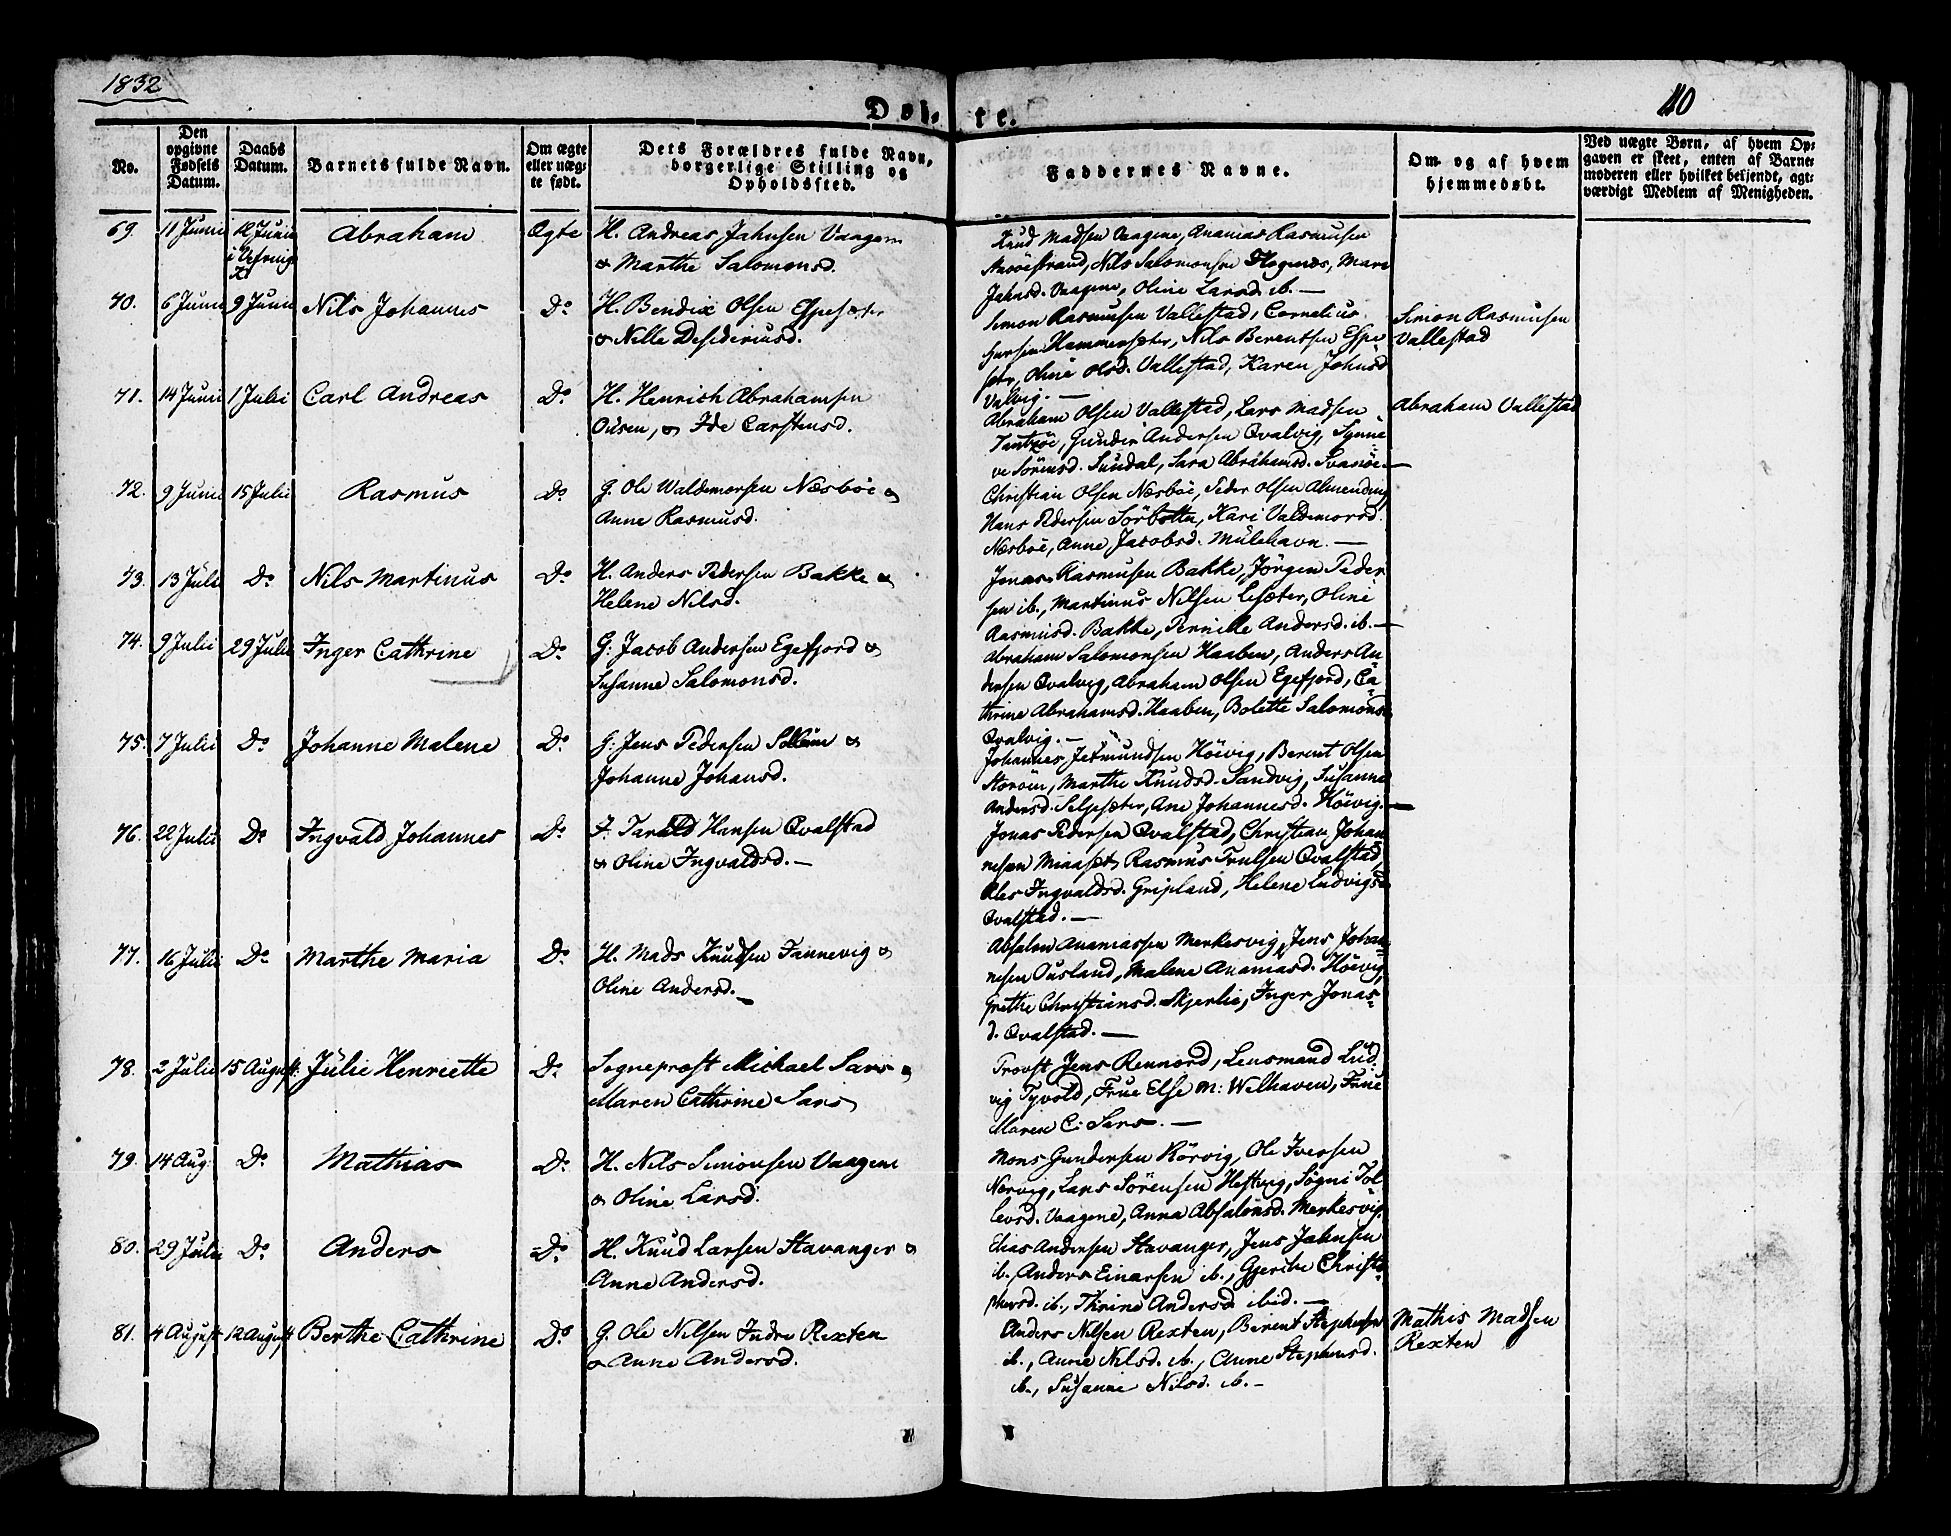 1832
110
Døbte.
No.
Den opgivne Fødsels Datum.
Daabs Datum.
Barnets fulde Navn.
Om ægte eller uægte født.
Dets Forældres fulde Navn, borgerlige Stilling og Opholdssted.
Faddernes Navne.
Om og af hvem hjemmedøbt.
Ved uægte Børn, af hvem Opgaven er skeet, enten af Barnemoderen eller hvilket betjendt, agtværdigt Medlem af Menigheden.
69. 11 Junii 12 Junii Abraham Ægte H. Andreas Jahnsen Vaagene
& Marthe Salomonsd.
Knud Madsen Vaagene, Ananias Rasmusen
Nils Salomonsen Hognæs, Mari
Jahnsd. Vaagene, Oline Larsd. ib. —
70. 6 Junii 9 Junii Nils Johannes Do H. Bendix Olsen Espesæter
& Nille Desideriusd.
Simon Rasmusen Vallestad, Cornelius
Hammersæter, Nils Berentsen Espe
sætr, Oline Olsd. Vallestad, Karen Johnsd
Valvig. —
Simon Rasmusen
Vallestad
71. 14 Junii 1 Julii Carl Andreas Do H. Henrich Abrahamsen
Ousen, & Ide Carstensd.
Abraham Olsen Vallestad, Lars Madsen
Gunder Andersen Qvalvig, Synne
ve Sörensd. Sundal, Sara Abrahamsd. Svanöe. —
Abraham Vallestad
72. 9 Junii 15 Julii Rasmus Do G. Ole Waldemorsen Næsböe &
Anne Rasmusd.
Christian Olsen Næsböe, Peder Olsen Almending
Hans Pedersen Sörbotten, Kari Valdemorsd.
Næsböe, Anne Jacobsd. Mülehavn. —
73. 13 Juli Do Nils Martinus Do H. Anders Pedersen Bakke &
Helene Nilsd.
Jonas Rasmusen Bakke, Jörgen Peder
sen ib., Martinus Nilsen Lesæter, Oline
Rasmusd. Bakke, Pernille Andersd. ib. —
74. 9 Julii 29 Julii Inger Cathrine Do G: Jacob Andersen Egefjord &
Susanne Salomonsd.
Abraham Salomonsen Haaben, Anders An
dersen Qvalvig, Abraham Olsen Egefjord, Ca
thrine Abrahamsd. Haaben, Bolette Salomonsd
Qvalvig. —
75. 7 Julii Do Johanne Malene Do G: Jens Pedersen
Johanne Johansd.
Johannes Jetmundsen Höivig, Berent Olsen
Storöen, Marthe Knudsd. Sandvig, Susanne
Andersd. Selsesæter, Ane Johannesd. Höivig. —
76. 22 Julii Do Ingvald Johannes Do Hansen Qvalstad
& Oline Ingvaldsd. —
Jonas Pedersen Qvalstad, Christian Johan
nesen Miaaset, Rasmus Trulsen Qvalstad,
Ingvaldsd. Gripland, Helene Ludvigsd
Qvalstad. —
77. 16 Julii Do Marthe Maria Do H. Mads Knudsen Fannevig &
Oline Andersd. —
Absalon Ananiassen Merkesvig, Jens Johan
nesen Ousland, Malene Ananiasd. Höivig,
Grethe Christiansd. Skjerlie, Inger Jonas
d. Qvalstad. —
78. 2 Julii 15 August: Julie Henriette Do Sogneprest Michael Sars &
Maren Cathrine Sars
Provst Jens Rennord, Lensmand Lud
vig Tyvold, Frue Else M: Welhaven, Frue
Maren C: Sars. —
79. 14 Aug: Do Mathias Do H. Nils Simonsen Vaagene
& Oline Larsd.
Mons Gundersen Rörvig, Ole Iversen
Nervig, Lars Sörensen Heftvig, Sögni Tol
levsd. Vaagene, Anna Absalonsd. Merkesvig.
80. 29 Julii Do Anders Do H. Knud Larsen Stavanger &
Anne Andersd.
Elias Andersen Stavanger, Jens Jahnsen
ib., Anders Einarsen ib., Gjertrue Christo
phersd. ib., Thrine Andersd ibid. —
81. 4 August 12 August Berthe Cathrine Do G. Ole Nilsen Indre Rexten
& Anne Andersd.
Anders Nilsen Rexten, Berent Stephensen
ib., Anne Nilsd. ib., Anne Stephensd.
ib., Susanne Nilsd. ib. —
Mathis Madsen
Rexten